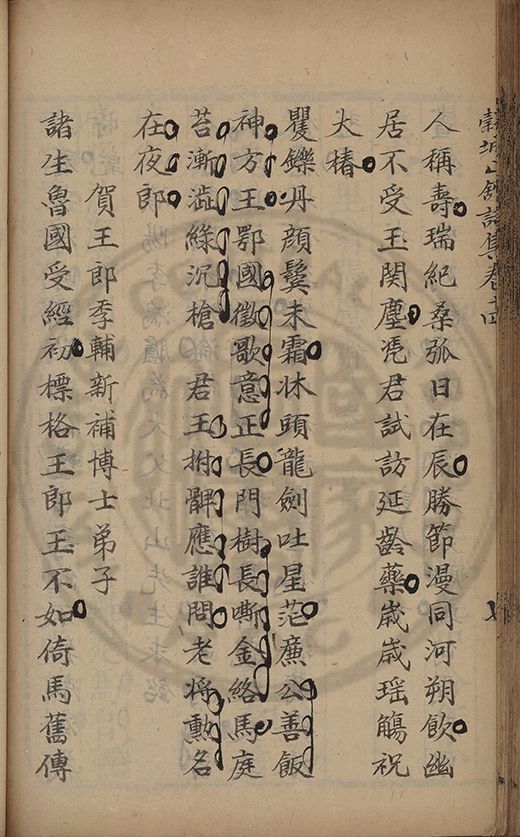 穀城山館詩集卷十四
人稱壽瑞紀桑弧日在辰勝節漫同河朔飲幽
居不受玉関塵凭君試訪延齡藥歲歲瑶觴祝
大椿
矍鑠丹顔鬓未霜牀頭龍劍吐星茫廉公善飯
神方王鄂國徵歌意正長門樹長嘶金絡馬庭
苔漸澁綠沉槍君王拊髀應誰問老将勲名
在夜郎
賀王郎季輔新補博士弟子
諸生魯國受經初標格王郎玉不如倚馬舊傳